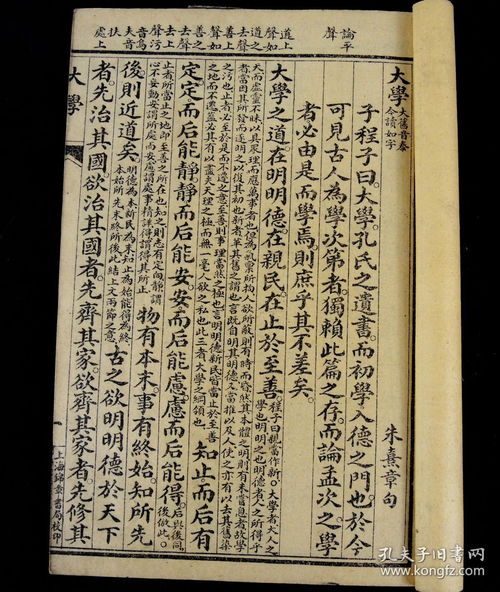 論平
聲
大學大舊音泰今讀如字 朱熹章句
子程子曰。大學。孔氏之遺書。而初學入德之門也。於今
可見古人為學次第者。獨賴此篇之存。而論孟次之。學
者必由是而學焉。則庶乎其不差矣。
大學之道。在明明德。在親民。在止於至善。程子曰親當作新○大學者大人之學也明明之也明德者人之所得乎
天而虛靈不昧以具眾理而應萬事者也但為氣禀所拘人欲所蔽則有時而昏然其本體之明則有未嘗息者故學
者當因其所發而遂明之以復其初也新者革其舊之謂也言既自明其明德又當推以及人使之亦有以去其舊染
之汚也止者必至於是而不遷之意至善則事理當然之極也言明明德新民皆當止於至善
之地而不遷蓋必其有以盡夫天理之極而無一毫人欲之私也此三者大學之綱領也 知止而后有
定。定而后能靜。靜而后能安。安而后能慮。慮而后能得。后與後同後倣此○
止者所當止之地即至善之所在也知之則志有定向靜謂
心不妄動安謂所處而安慮謂處事精詳得謂得其所止 物有本末。事有終始。知所先
後。則近道矣。明德為本新民為末知止為始能得為終本始所先末終所後此結上文兩節之意 古之欲明明德於天下
者。先治其國。欲治其國者。先齊其家。欲齊其家者。先修其
大學
上海錦章書局校印
孔夫子旧书网
www.kongfz.com